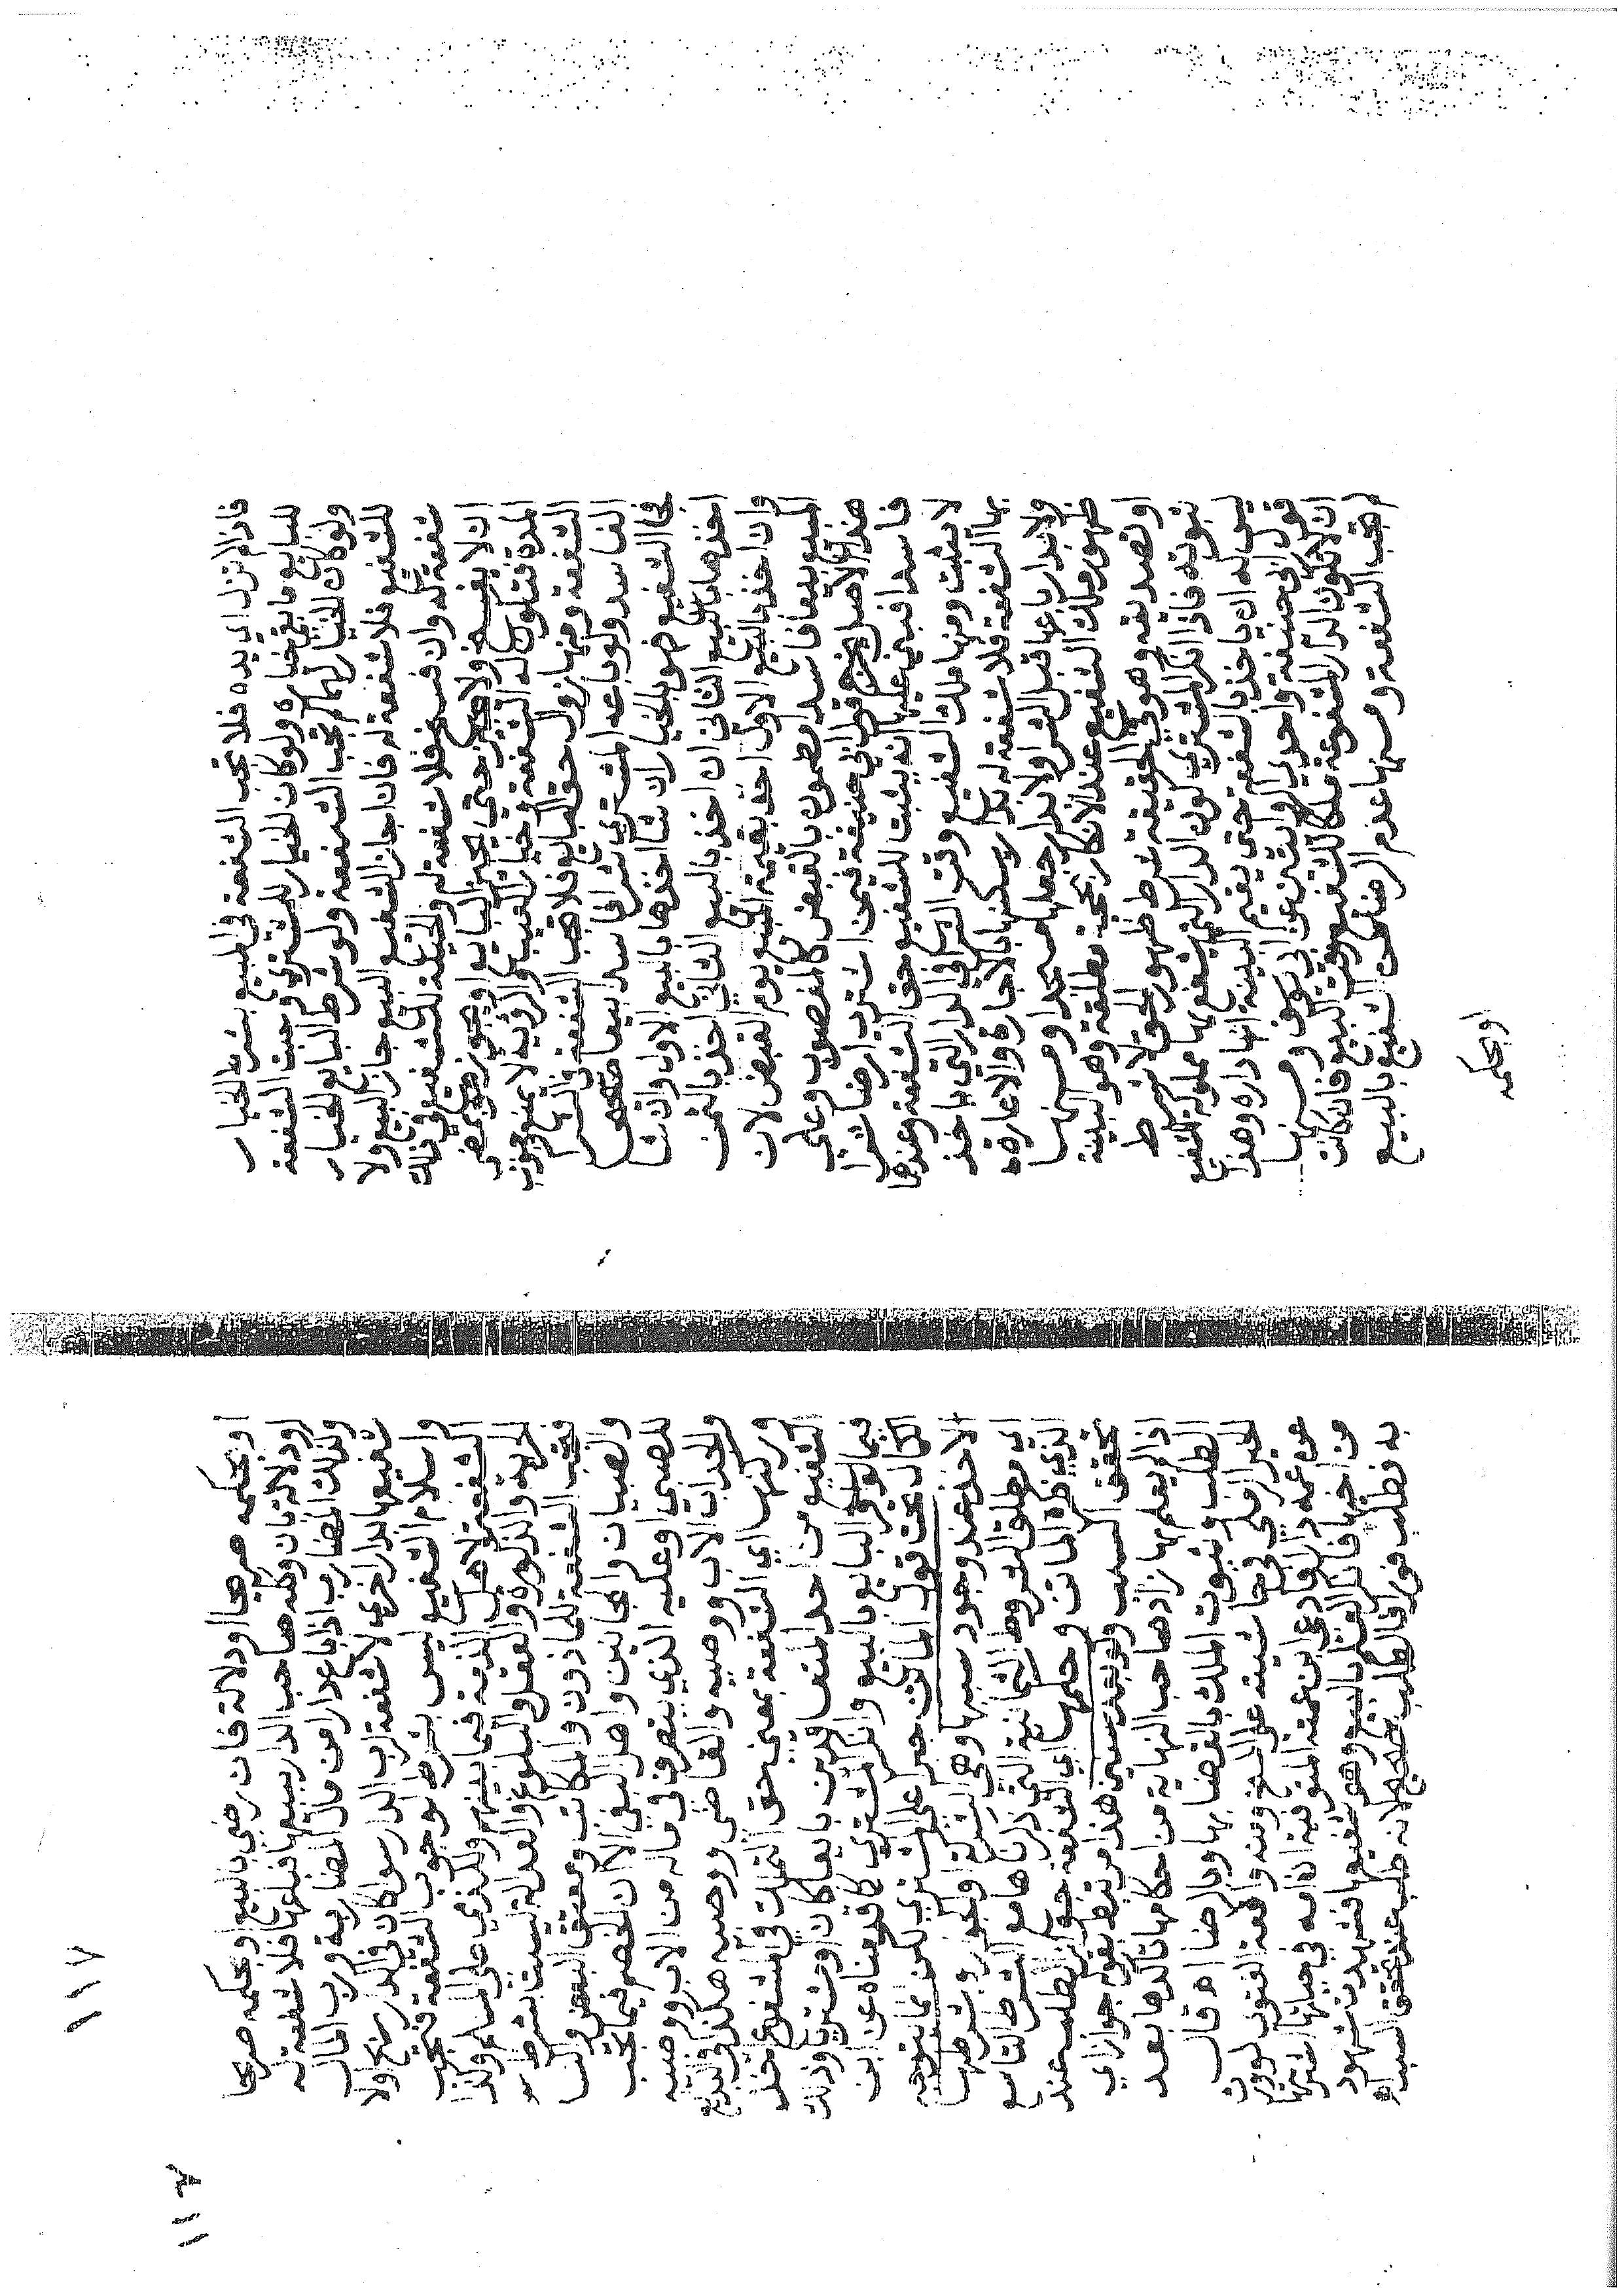 فاذا لم تزل اي يده فلا تجب الشفعة في المبيع بشرط الخيار
للبايع ما بقي خياره ولو كان الخيار للمشتري وجبت الشفعة
ولو كان الخيار لهما لم تجب الشفعة ولو شرط البايع الخيار
للشفيع فلا شفعة له فان اجاز الشفيع البيع جاز البيع ولا
شفعة له وان فسخ فلا شفعة له والحيلة للشفيع في ذلك
ان لا يفسخ ولا يجيز حتى يجيز البايع او يجوز هو بمضي
المدة فتكون له الشفعة وخيار العيب والروية لا يمنع وجوب
الشفعة ومنها زوال حق البايع فلا تجب الشفعة في الشرا
الفاسد ولو باعه المشتري شرا فاسدا بيعا صحيحا
فجا الشفيع فهو بالخيار ان شا اخذها بالبيع الاول وان شا
اخذها بالبيع الثاني ان اخذ بالبيع الثاني اخذ بالثمن
وان اخذ بالبيع الاول اخذ بقيمة المبيع يوم القبض لان
المبيع بيعا فاسدا مضمون بالقبض كالمغصوب وعلى
هذا الاصل يخرج قول ابي حنيفة فيمن اشترى ارضا شرا
فاسدا فبنى عليها انه يثبت للشفيع حق الشفعة وعندهما
لا يثبت ومنها ملك الشفيع وقت الشرا في الدار التي ياخذ
بها الشفعة فلا شفعة له بدار يسكنها بالاجارة والاعارة
ولا بدار باعها قبل الشرا ولا بدار جعلها مسجدا ومنها
ظهور ملك الشفيع عند الانكار بحجة مطلقة وهو البينة
او تصديقه وهو في الحقيقة شرط ظهور الحق لا شرط
ثبوته فاذا انكر المشتري كون الدار التي يشفع بها مملوكة للشفيع
ليس له ان ياخذ بالشفعة حتى يقيم البينة انها داره وهذا
قول ابي حنيفة واحدى الروايتين عن ابي يوسف ومنها
ان لا تكون الدار المشفوعة ملكا للشفيع وقت البيع فان كانت
لم تجب الشفعة ومنها عدم الرضا من الشفيع بالبيع
او بحكمه
١١٧
١١٧
او بحكمه صريحا او دلالة فان رضي بالبيع او بحكمه صريحا
او دلالة بان وكله صاحب الدار ببيعها فباعها فلا شفعة له
وكذلك المضارب اذا باع دارا من مال المضاربة ورب المال
شفيعها بدار اخرى لا شفعة لرب الدار سوا كان في الدار ربح اولا
واسلام الشفيع ليس بشرط لوجوب الشفعة فتجب
الشفعة لاهل الذمة فيما بينهم وللذمي على المسلم وكذا
الحرية والذكورة والعقل والبلوغ والعدالة ليست بشرط
فتجب الشفعة للماذون والمكاتب ومعتق البعض والنسا
والصبيان والمجانين واهل البغي الا ان الخصم فيما يجب
للصبي او عليه الذي يتصرف في ماله من الاب ووصيه
والجد اب الاب ووصيه والقاضي ووصيه هكذا في البدايع
وركنها اي الشفعة بمعنى حق التملك في المشفوع اخذ
الشفيع من احد المتعاقدين بايعا كان او مشتريا وذلك
فيما لو اقر البايع بالبيع وانكر المشتري كما قدمناه عن ابن
الكمال تحت قول الماتن جبرا على المشتري لكن انما يتوجه
الاخذ عند وجود سببها وهي الشركة او الجوار وبشرطها
اي مطلق الشروط الثمانية التي ذكرناها مع الشرط التاسع
الذي ذكره الماتن وحكمها اي الشفعة جواز الطلب عند
تحقق السبب ولو بعد سنين هذا مرتبط بقوله جواز اي
اذا لم يعلم بها زاد صاحب النهاية من احكامها تاكدها بعد
الطلب وثبوت الملك بالقضا بها وبالرضا اه قال
الخير الرملي في حاشيته على المنح ومنه واقعة الفتوى لو ورث
عن عمه دارا فادعى ابن عمته المتوفية ان امه في حياتها اشترتها
من اخيها فانكر العلم بالبيع وهو شفيعها فشهدت شهود
به فطلب فورا فالطلب صحيح لانه طلب عند تحقق السبب اه